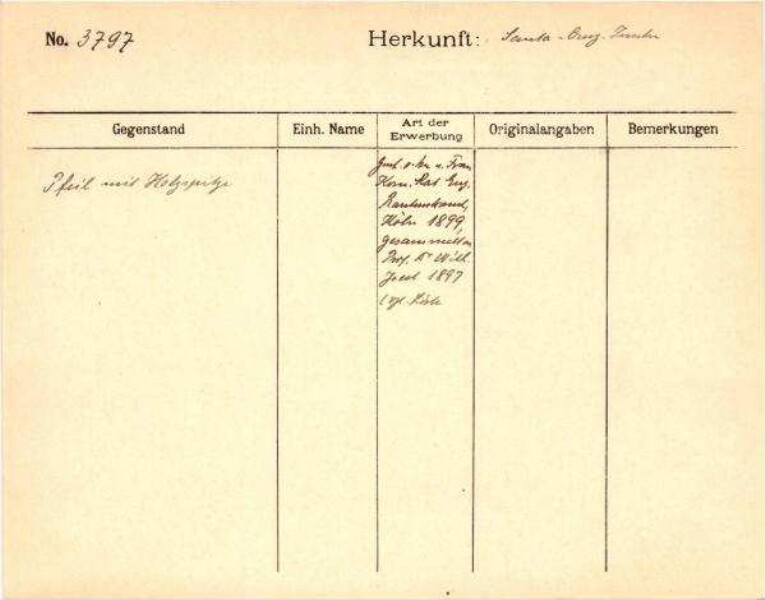 No. 3797 Herkunft: Santa-Cruz-Inseln
Gegenstand Einh. Name Art der Erwerbung Originalangaben Bemerkungen
Pfeil mit Holzspitze
u. Frau
Kom. Rat Eug.
Rautenstrauch,
Köln 1899,
gesammelt von
Prof. Dr Wilh.
Joest 1897
(vgl. Liste